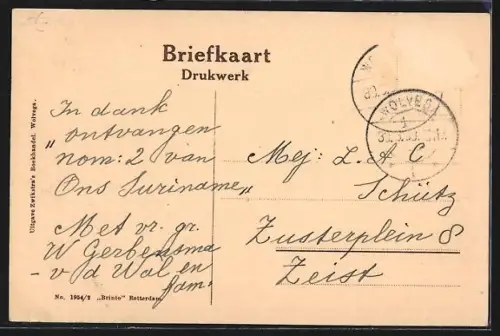 Briefkaart
Drukwerk
In dank
"ontvangen
nom: 2 van
Ons Suriname"
Met vr. gr.
W Gerbensma
- v d Wal en
fam.
Mej: L. A C
Schütz
Zusterplein 8
Zeist
WOLVEGA
Uitgave Zwikstra's Boekhandel. Wolvega.
No. 1954/2 „Brinio" Rotterdam.